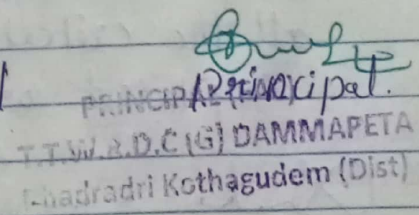 PRINCIPAL (FAC) Principal.
T.T.W.R.D.C (G) DAMMAPETA
Bhadradri Kothagudem (Dist)